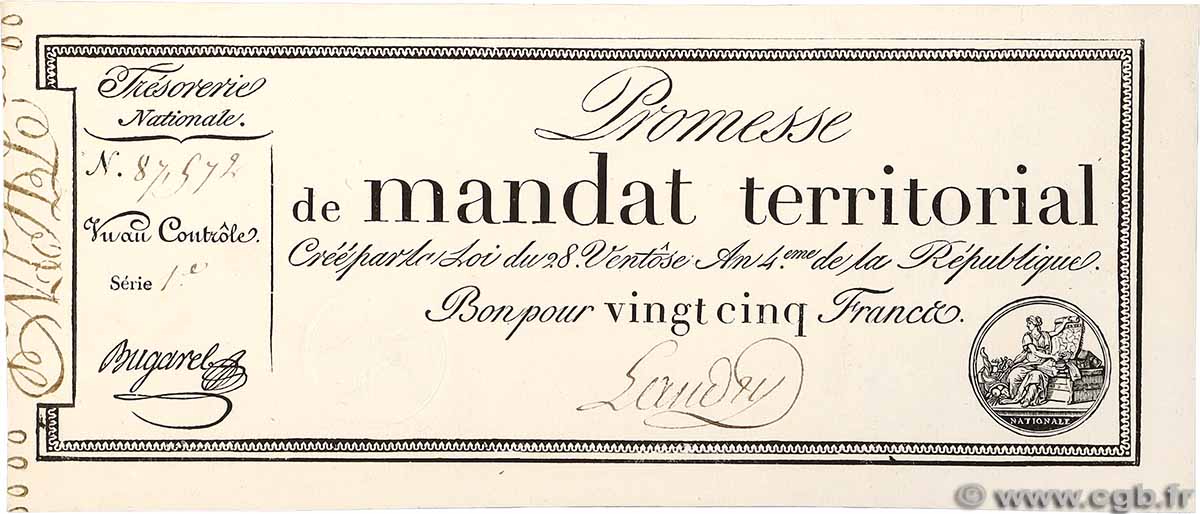 Trésorerie
Nationale.
N. 87,572
Vu au Contrôle.
Série 1.e
Bugarel
Promesse
de mandat territorial
Créé par la Loi du 28. Ventôse An 4.eme de la République.
Bon pour vingt cinq Francs.
Landry
NATIONALE
© www.cgb.fr